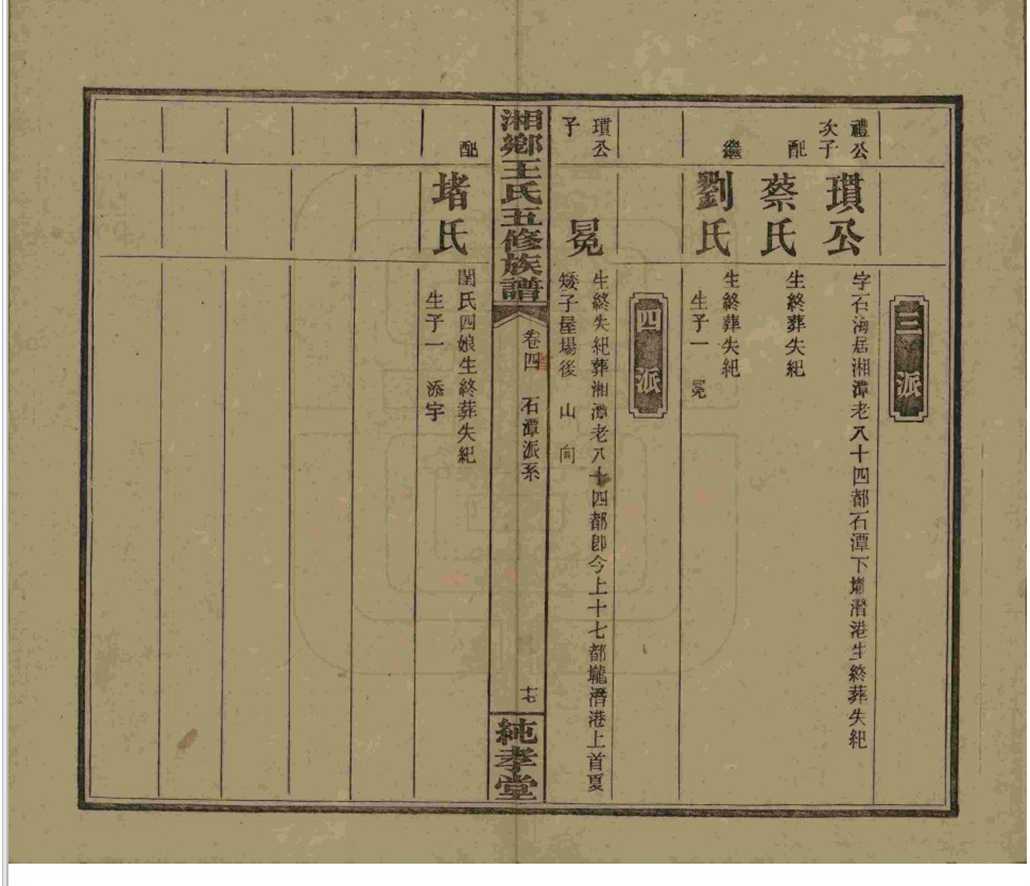 三派
禮公次子
瓆公
字石海居湘潭老八十四都石潭下壩潛港生終葬失紀
配
蔡氏
生終葬失紀
繼
劉氏
生終葬失紀
生子一 冕
四派
瓆公子
冕
生終失紀葬湘潭老八十四都卽今上十七都壠潛港上首夏
矮子屋場後 山 向
湘鄉王氏五修族譜
卷四 石潭派系
十七
純孝堂
配
堵氏
閨氏四娘生終葬失紀
生子一 添宇